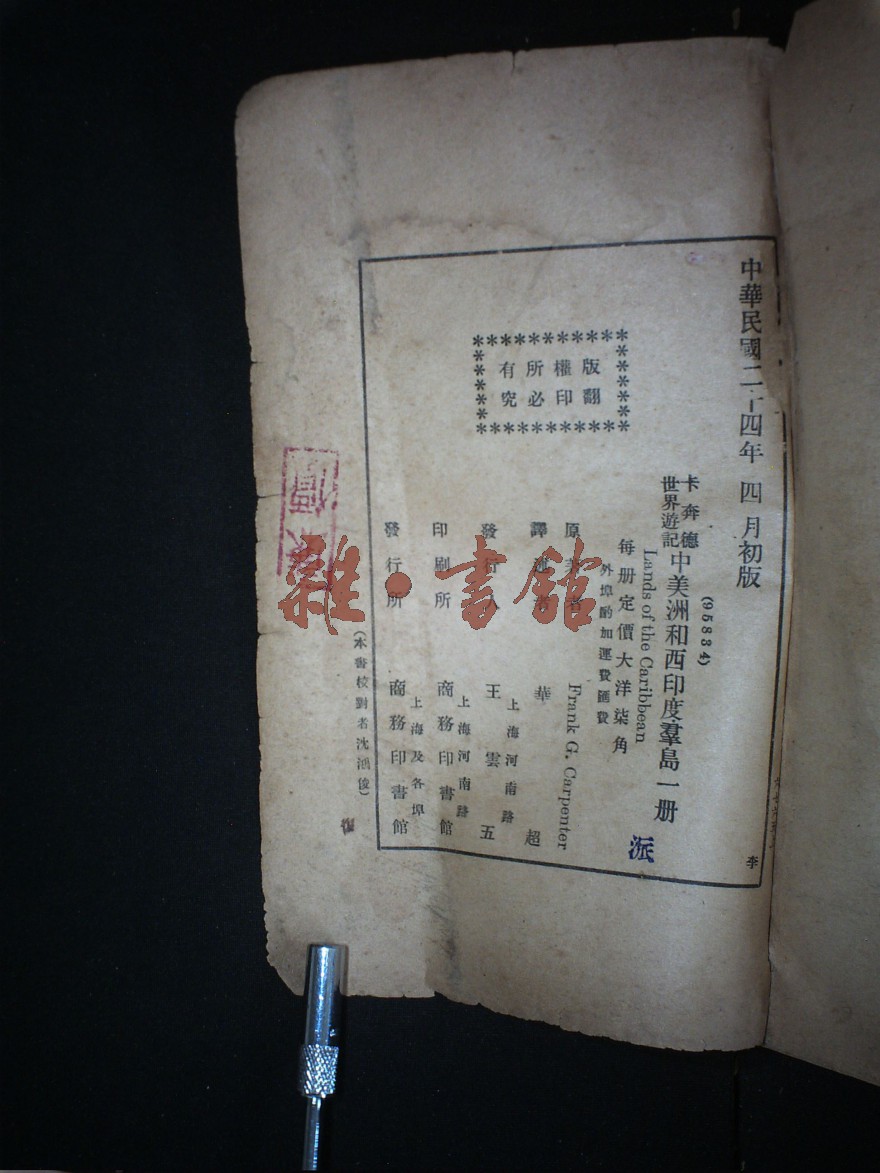 中華民國二十四年四月初版
李
(95834)
卡奔德
世界遊記
中美洲和西印度羣島一册
Lands of the Caribbean
每册定價大洋柒角
外埠酌加運費匯費
派
版權所有
翻印必究
原著者
Frank G. Carpenter
譯述者
華超
發行人
上海河南路
王雲五
印刷所
上海河南路
商務印書館
發行所
上海及各埠
商務印書館
(本書校對者沈鴻俊)
雜·書館